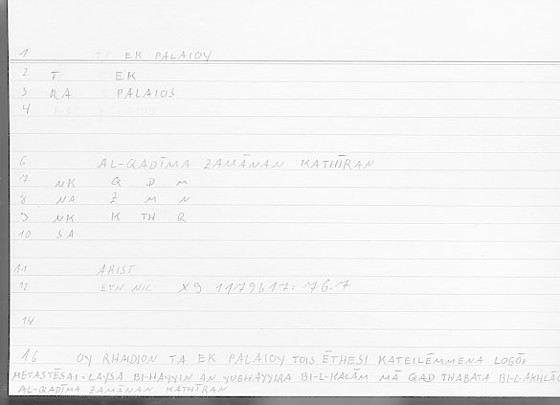 1 EK PALAIOY
2 T EK
3 RA PALAIOS
4
6 AL-QADĪMA ZAMĀNAN KATHĪRAN
7 NK Q D M
8 NA Z M N
9 NK K TH R
10 SA
11 ARIST
12 ETH NIC X9 1179b17: 76.7
14
16 OY RHADION TA EK PALAIOY TOIS ĒTHESI KATEILĒMMENA LOGŌI
METASTĒSAI = LAYSA BI-HAYYIN AN YUGHAYYIRA BI-L-KALĀM MĀ QAD THABATA BI-L-AKHLĀQ
AL-QADĪMA ZAMĀNAN KATHĪRAN